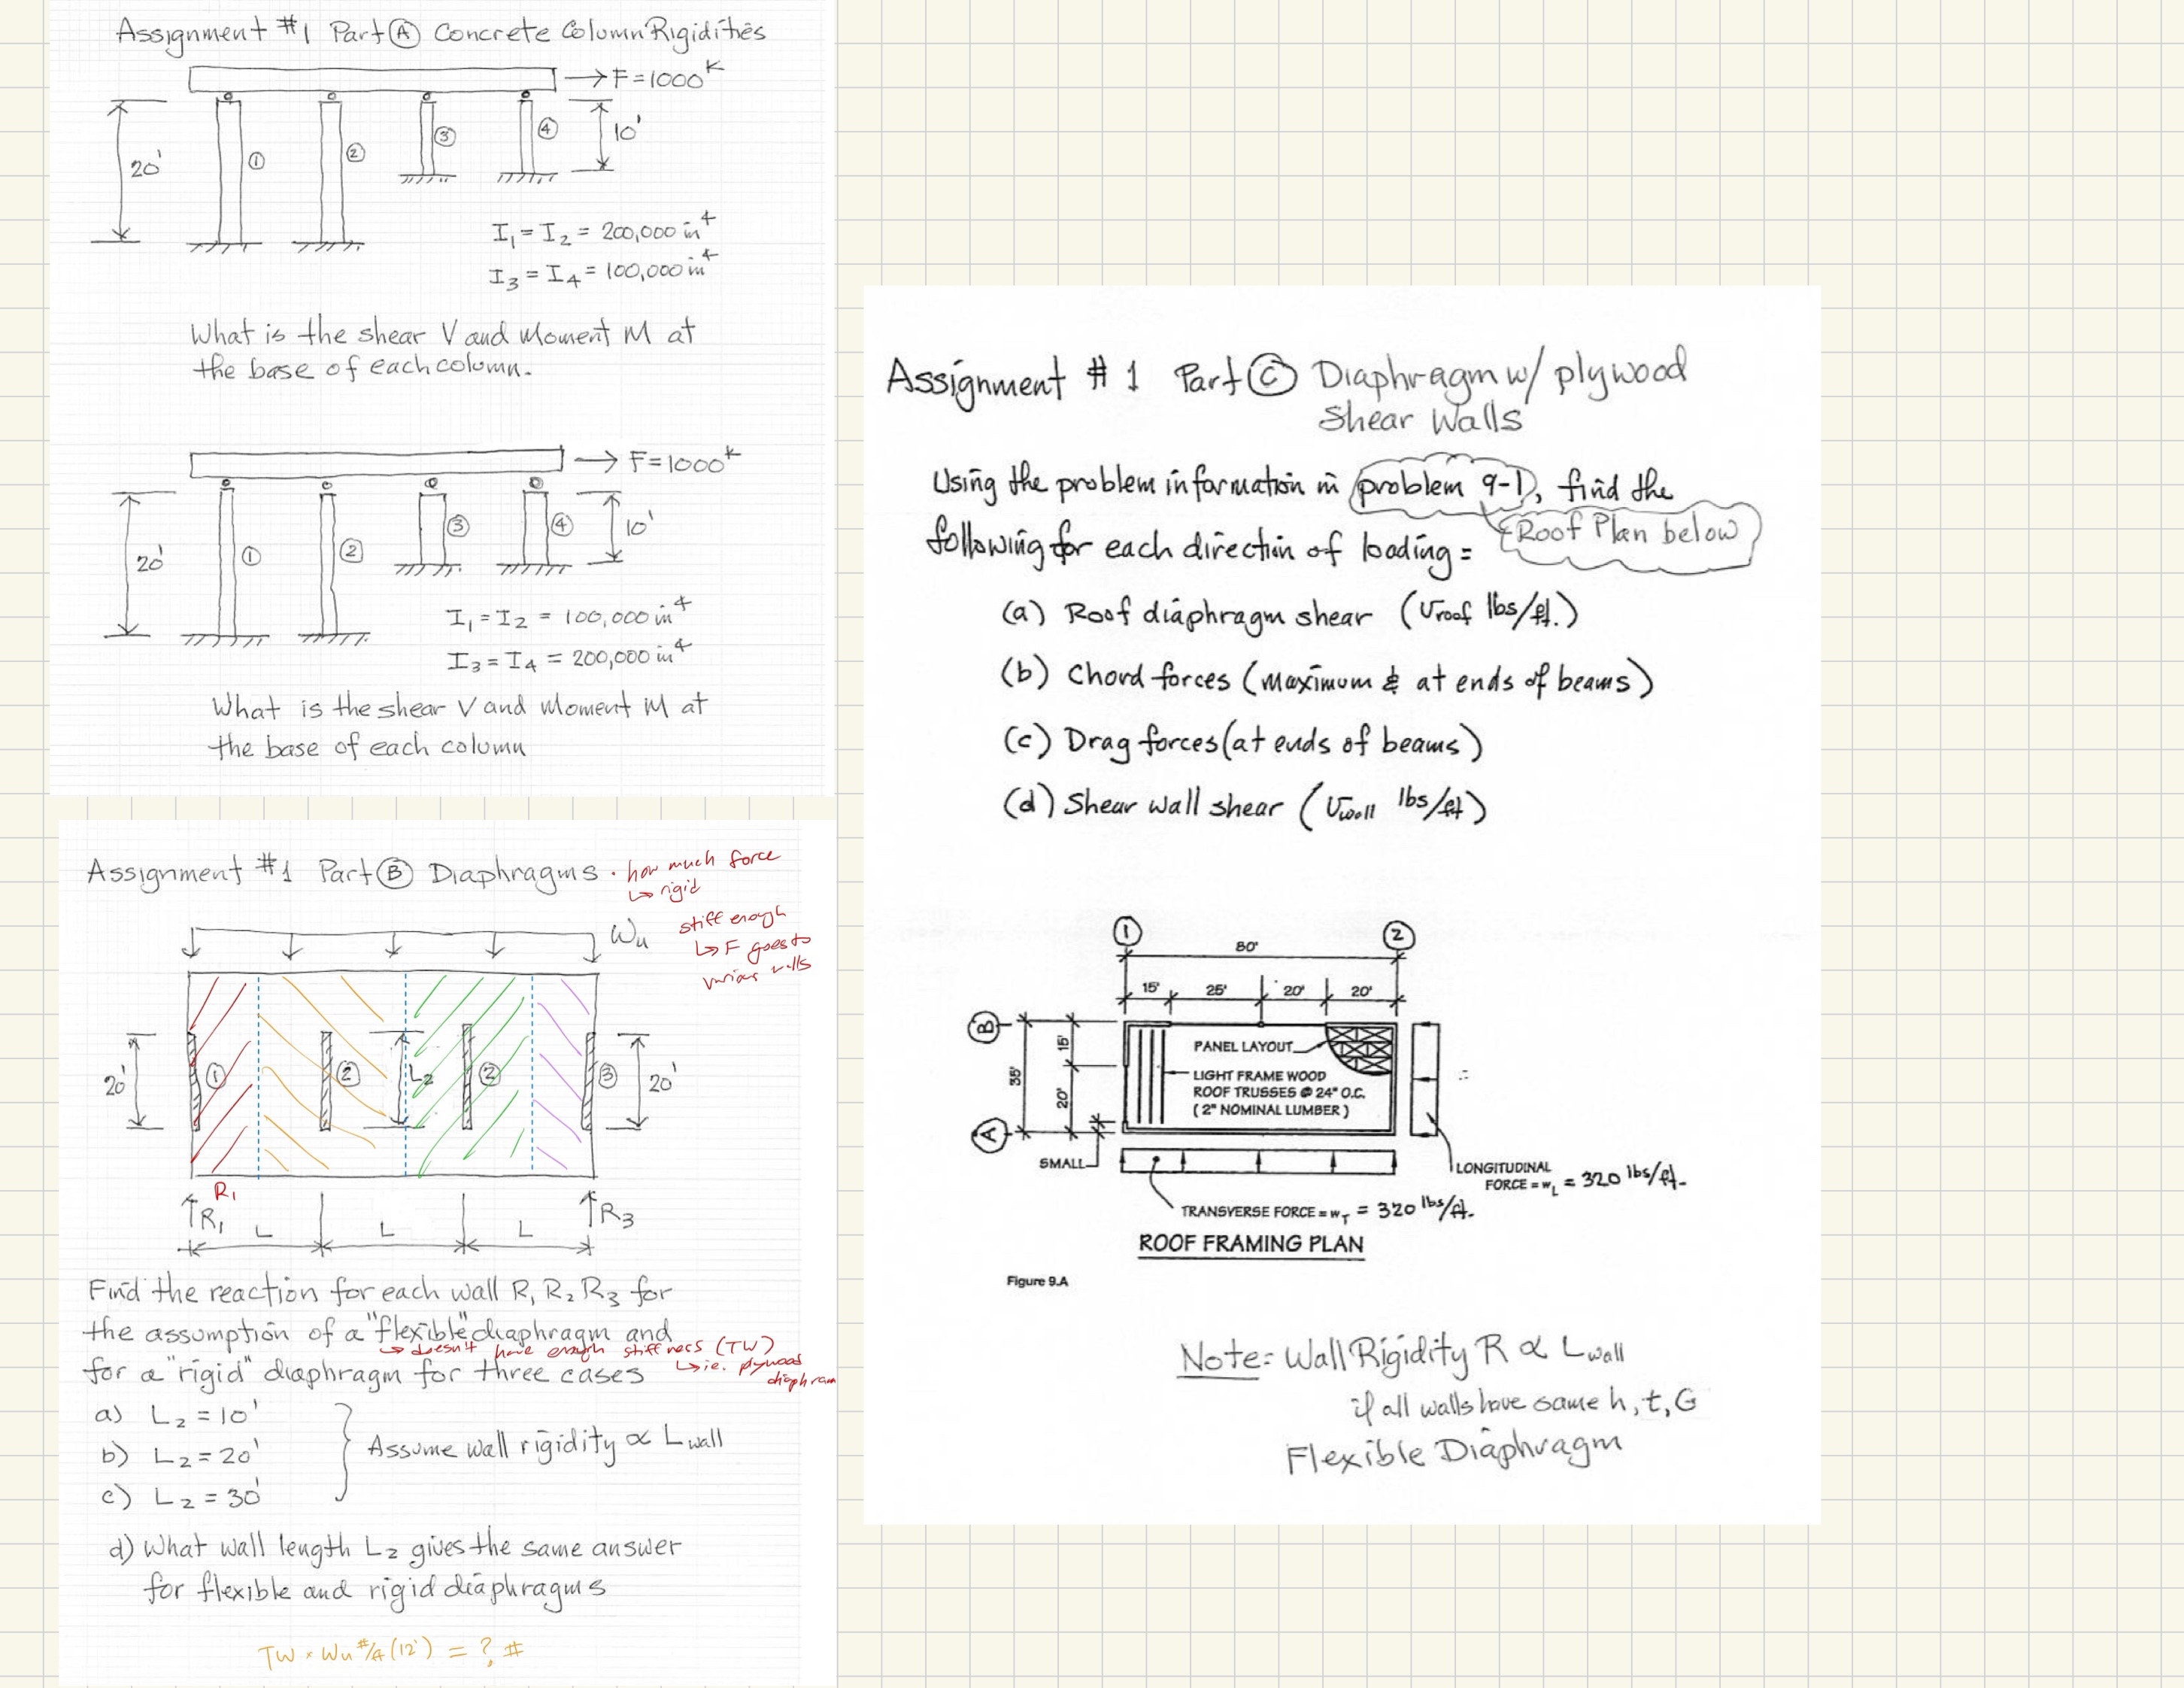 Assignment #1 Part Ⓐ Concrete Column Rigidities
F=1000ᴷ
20'
①
②
③
④
10'
I₁ = I₂ = 200,000 in⁴
I₃ = I₄ = 100,000 in⁴
What is the shear V and Moment M at
the base of each column.
F=1000ᴷ
20'
①
②
③
④
10'
I₁ = I₂ = 100,000 in⁴
I₃ = I₄ = 200,000 in⁴
What is the shear V and Moment M at
the base of each column
Assignment #1 Part Ⓑ Diaphragms
· how much force
↳ rigid
stiff enough
↳ F goes to
various walls
Wu
20'
①
②
L₂
②
③
20'
R₁
R₁
L
L
L
R₃
Find the reaction for each wall R₁ R₂ R₃ for
the assumption of a "flexible" diaphragm and
↳ doesn't have enough stiffness (TW)
↳ ie. plywood
diaphram
for a "rigid" diaphragm for three cases
a) L₂ = 10'
b) L₂ = 20'
c) L₂ = 30'
Assume wall rigidity ∝ Lwall
d) What wall length L₂ gives the same answer
for flexible and rigid diaphragms
TW × Wu #/ft (12') = ? #
Assignment #1 Part Ⓒ Diaphragm w/ plywood
Shear Walls
Using the problem information in problem 9-1, find the
Roof Plan below
following for each direction of loading =
(a) Roof diaphragm shear (υroof lbs/ft.)
(b) Chord forces (maximum & at ends of beams)
(c) Drag forces (at ends of beams)
(d) Shear wall shear (υwall lbs/ft)
①
②
80'
15'
25'
20'
20'
Ⓑ
15'
35'
20'
Ⓐ
PANEL LAYOUT
LIGHT FRAME WOOD
ROOF TRUSSES @ 24" O.C.
( 2" NOMINAL LUMBER )
SMALL
LONGITUDINAL
FORCE = wL = 320 lbs/ft.
TRANSVERSE FORCE = wT = 320 lbs/ft.
ROOF FRAMING PLAN
Figure 9.A
Note: Wall Rigidity R ∝ Lwall
if all walls have same h, t, G
Flexible Diaphragm